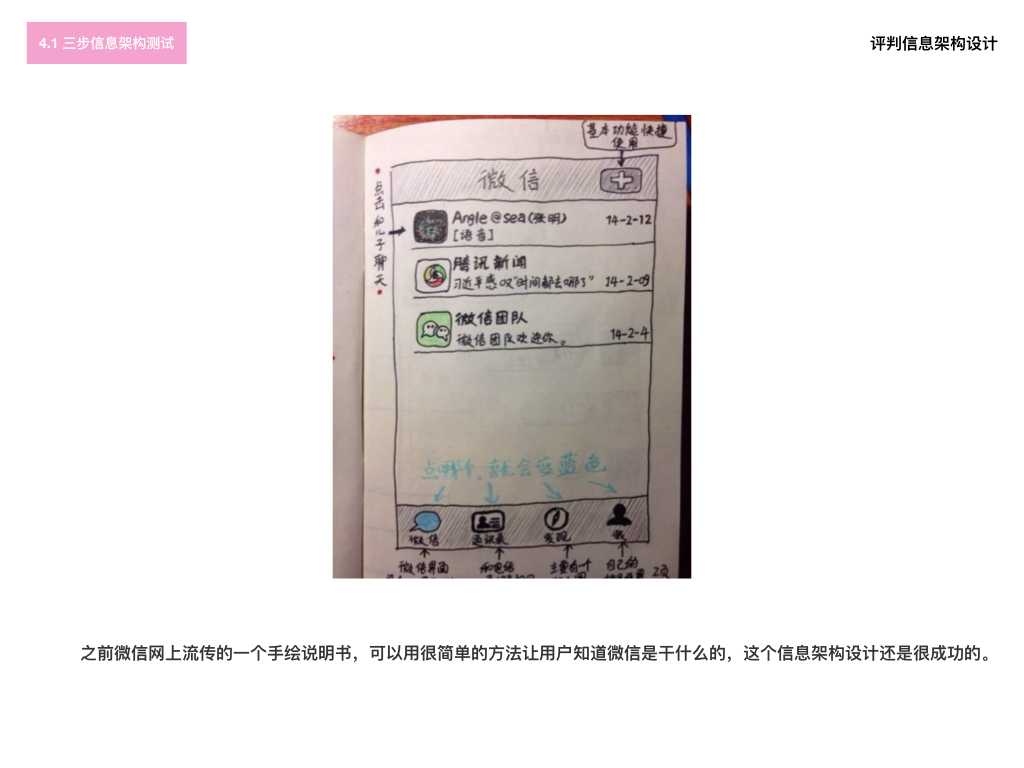 4.1 三步信息架构测试
评判信息架构设计
基本功能快捷
使用
微信
点击和儿子聊天
Angle@sea(张明)
14-2-12
[语音]
腾讯新闻
习近平感叹“时间都去哪了” 14-2-09
微信团队
微信团队欢迎你。 14-2-4
点哪个,就会变蓝色
微信 通讯录 发现 我
微信界面 和电话 主要有一个 自己的
2页
之前微信网上流传的一个手绘说明书，可以用很简单的方法让用户知道微信是干什么的，这个信息架构设计还是很成功的。